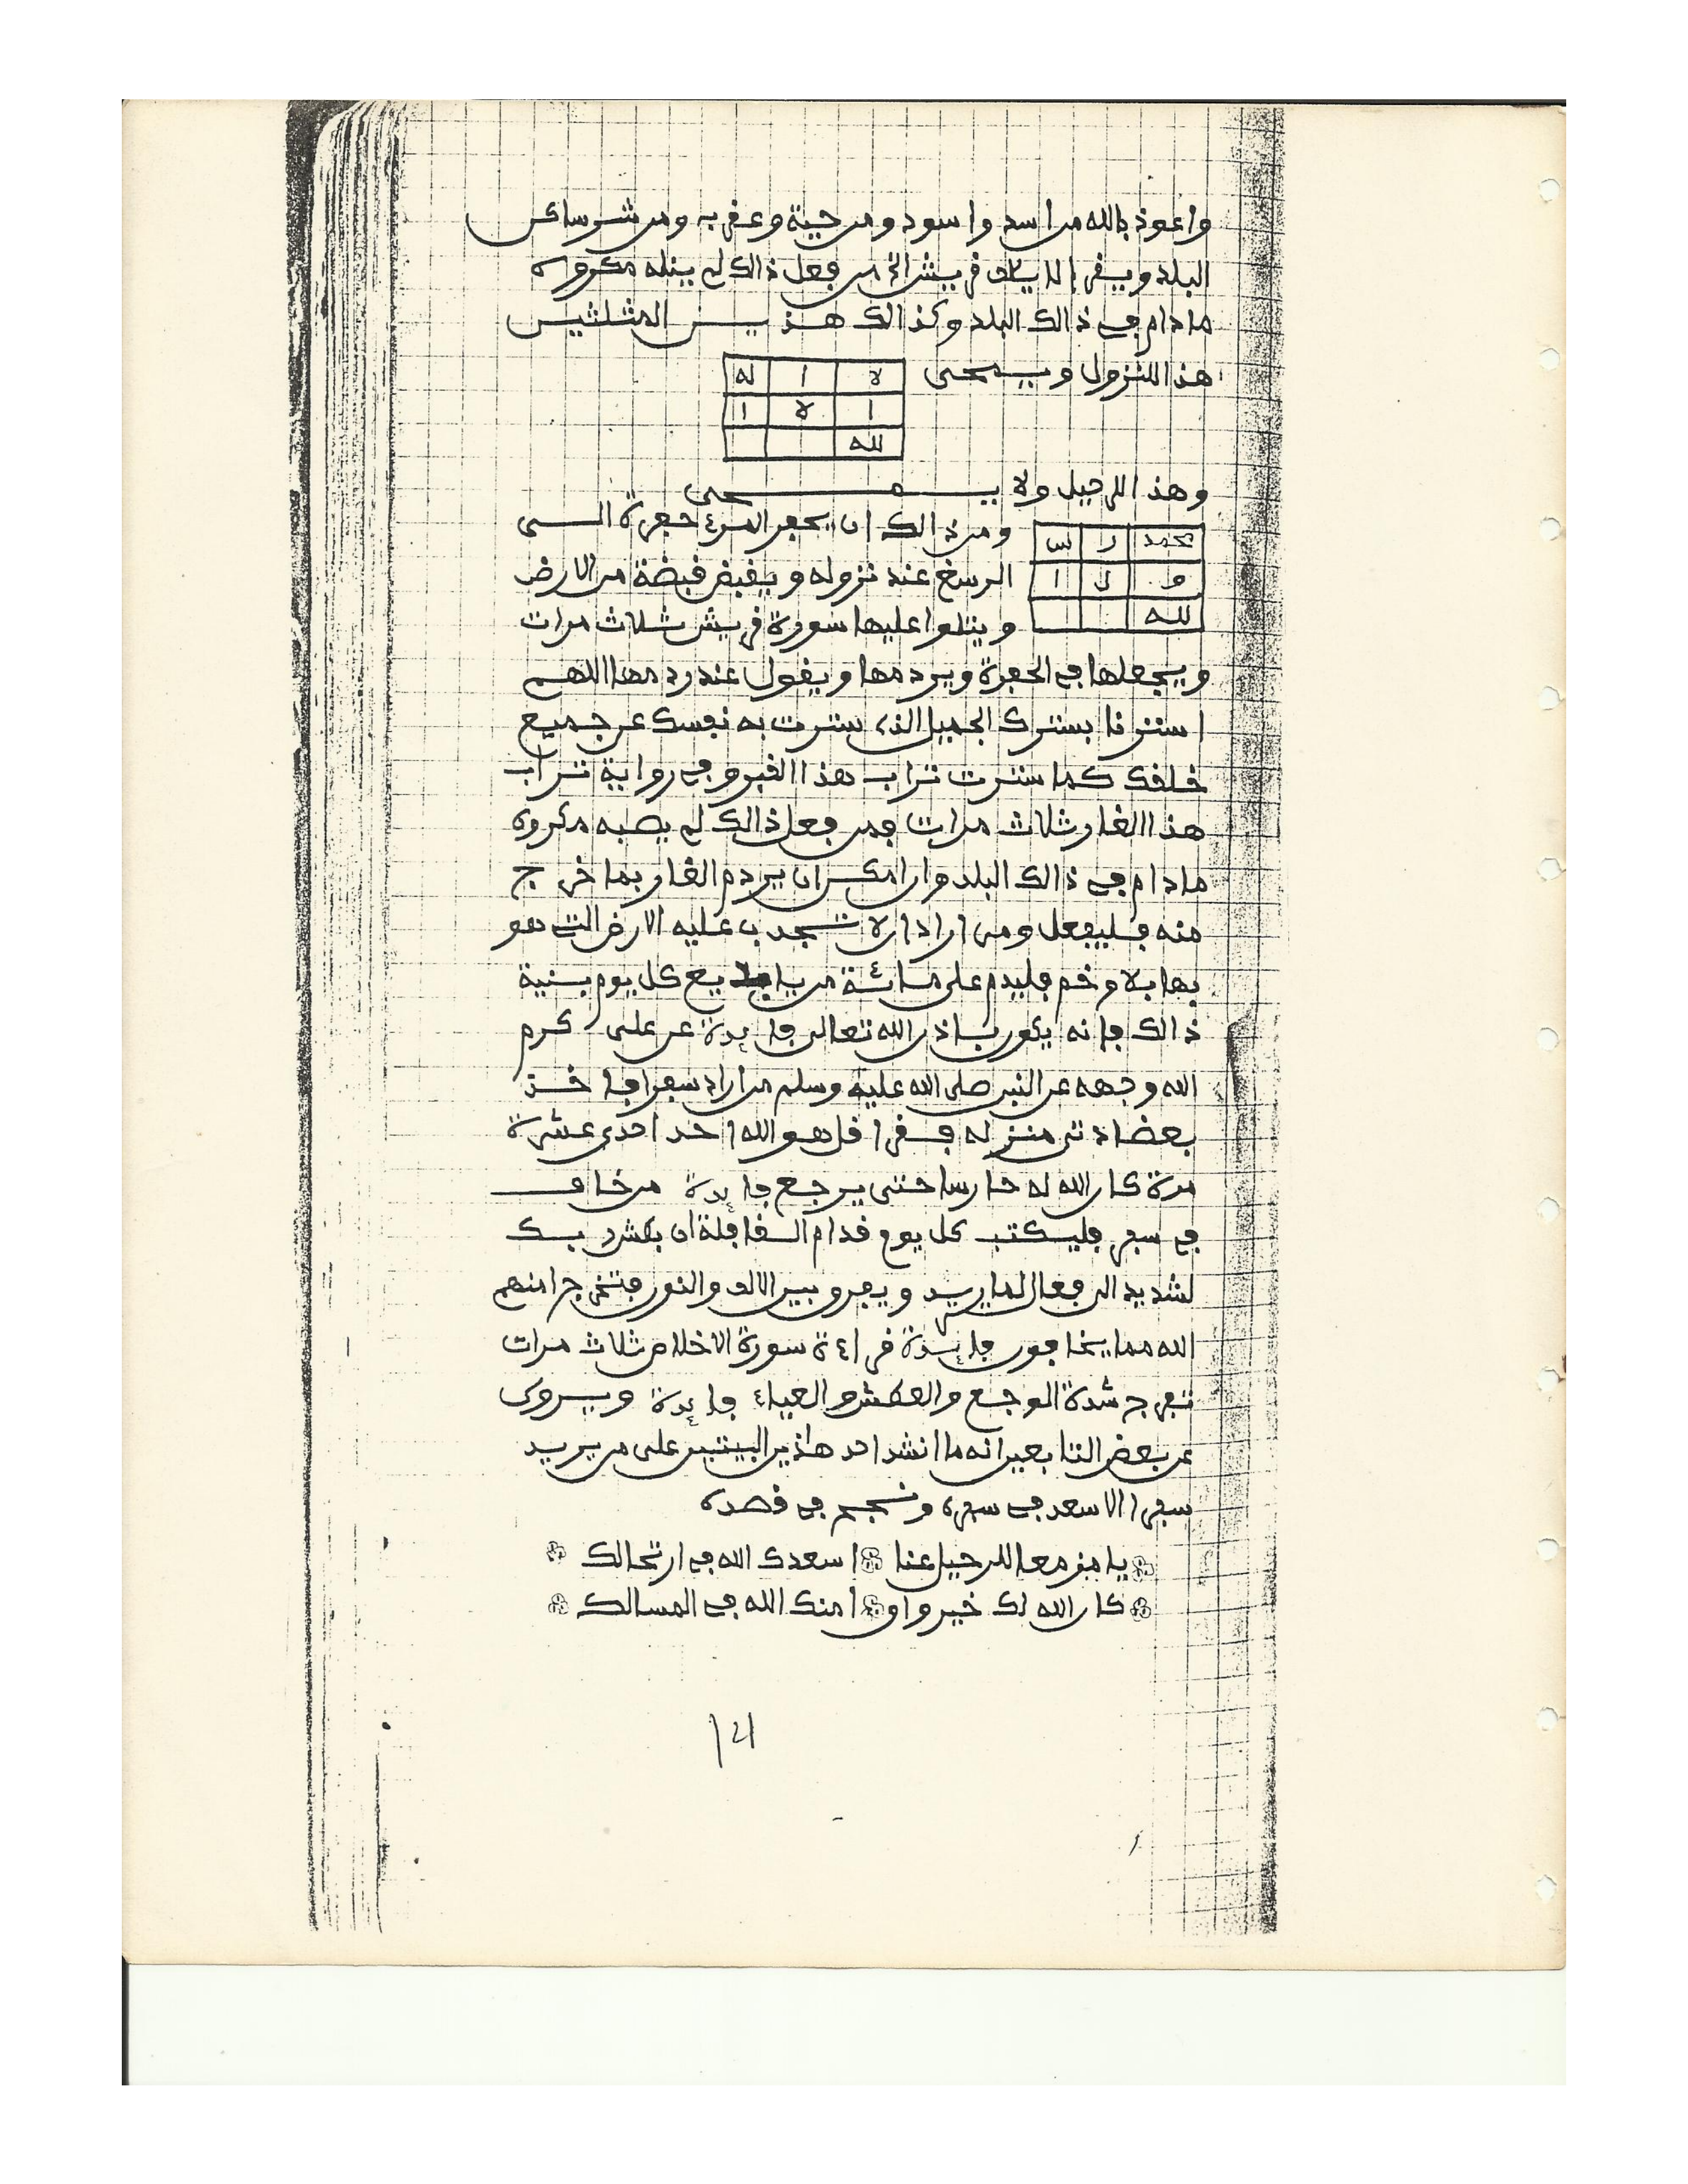 واعوذ بالله من اسد واسود ومن حية وعقرب ومن شر ساكن
البلد ويقرأ لايلاف قريش الخ من فعل ذالك لم ينله مكروه
مادام في ذالك البلد وكذالك هذين المثلثين
هذا للنزول ويمحى
لا ا له
ا لا ا
لله
وهذا للرحيل ولا يمحى
محمد ر س
و ل ا
لله
ومن ذالك ان يحفر المرء حفرة الى
الرسغ عند نزوله ويقبض قبضة من الارض
ويتلوا عليها سورة قريش ثلاث مرات
ويجعلها في الحفرة ويردمها ويقول عند ردمها اللهم
استرنا بسترك الجميل الذي سترت به نفسك عن جميع
خلقك كما سترت تراب هذا القبر وفي رواية تراب
هذا الغار ثلاث مرات فمن فعل ذالك لم يصبه مكروه
مادام في ذالك البلد وان امكن ان يردم الغار بما خرج
منه فليفعل ومن اراد ان لا تجدب عليه الارض التي هو
بها بلا وخم فليدم على مائة من يا بديع كل يوم بنية
ذالك فإنه يكون باذن الله تعالى فايدة عن على كرم
الله وجهه عن النبي صلى الله عليه وسلم من اراد سفرا فاخذ
بعضادتي منزله فقرا قل هو الله احد احدى عشرة
مرة كان الله له حارسا حتى يرجع فايدة من خاف
في سفر فليكتب كل يوم قدام القافلة ان بطش ربك
لشديد الى فعال لما يريد ويفرق بين الالف والنون فتخرج امنهم
الله مما يخافون فايدة قراءة سورة الاخلاص ثلاث مرات
تفرج شدة الوجع والعطش والعياء فايدة ويروى
عن بعض التابعين انه ما انشد احد هاذين البيتين على من يريد
سفرا الا سعد في سفره ونجح في قصده
يا مزمعا للرحيل عنا اسعدك الله في ارتحالك
كان الله لك خير واق امنك الله في المسالك